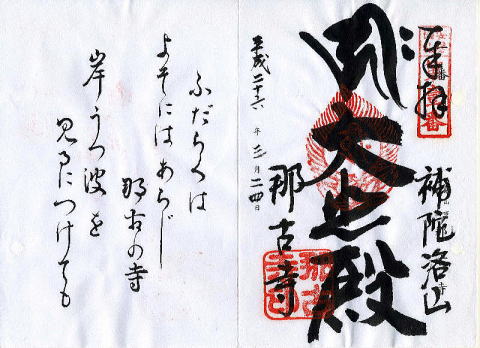 奉拝
補陀洛山
大悲殿
那古寺
平成二十六年三月二四日
ふだらくは
よそにはあらじ
那古の寺
岸うつ波を
見るにつけても